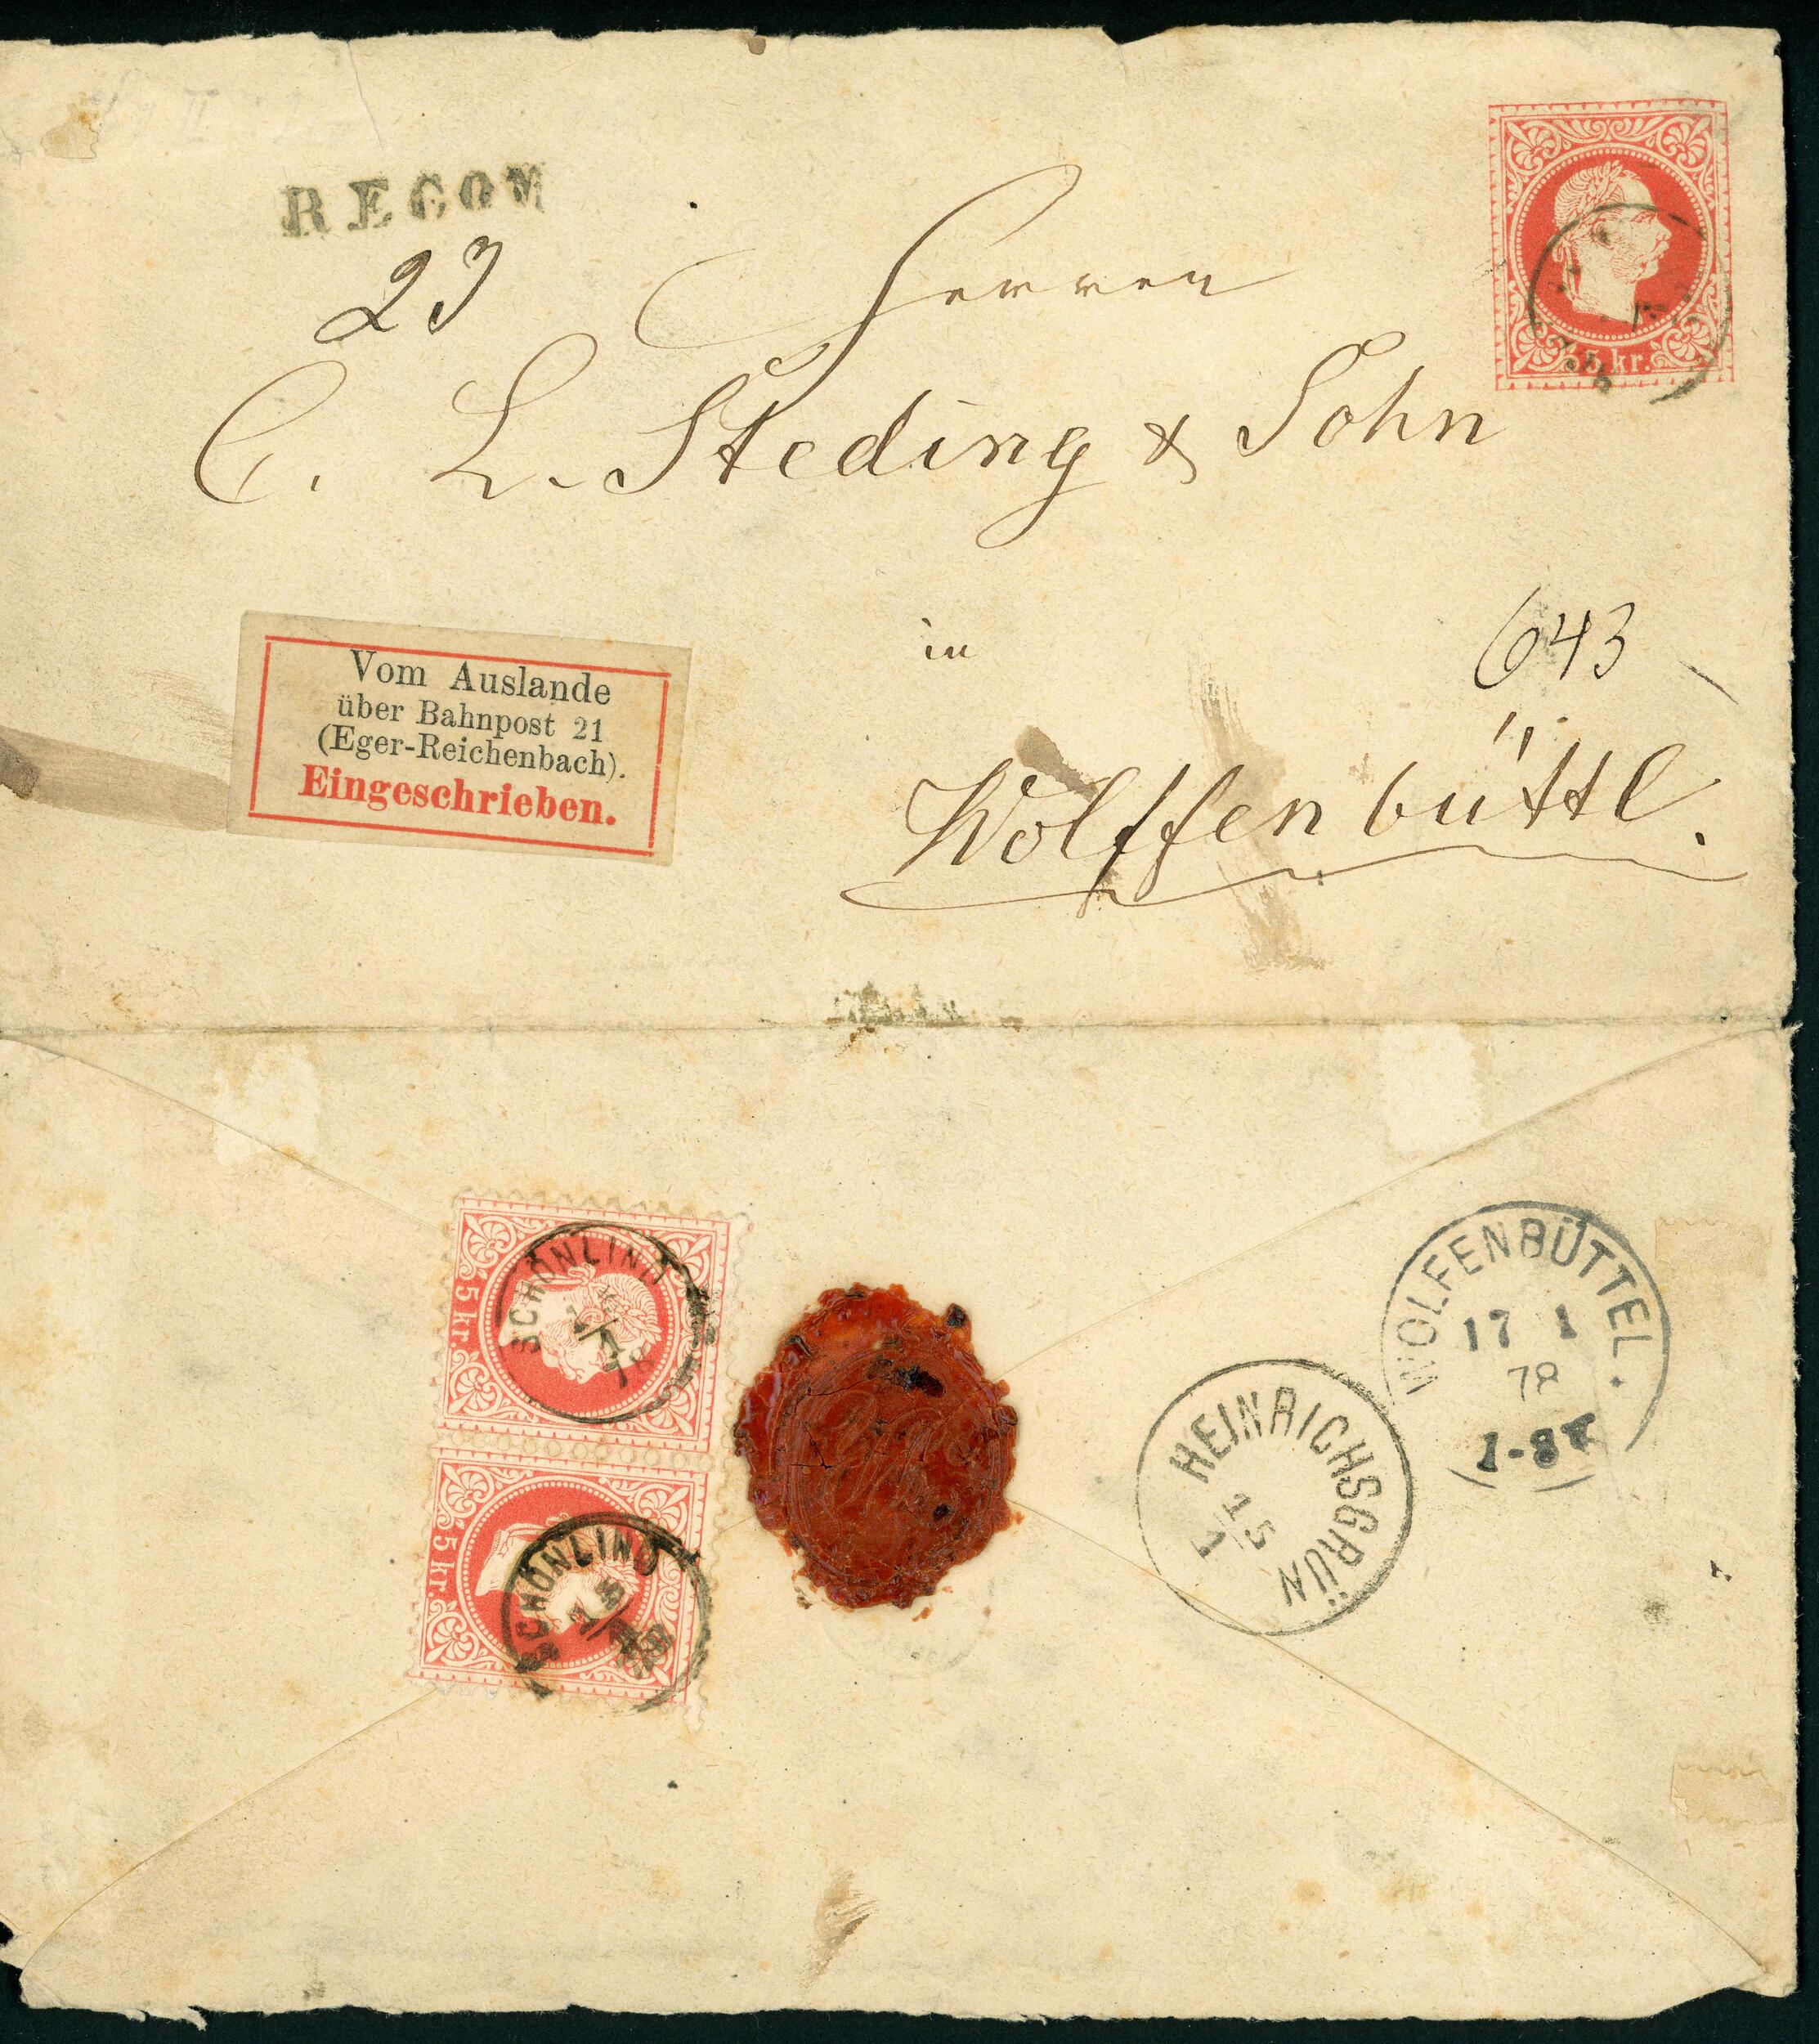 RECOM
23
Herren
5 kr.
C. L. Steding & Sohn
Vom Auslande
über Bahnpost 21
(Eger-Reichenbach).
Eingeschrieben.
in
643
Wolffenbüttl.
5 kr.
SCHÖNLIND
1
78
5 kr.
SCHÖNLIND
15
78
WOLFENBÜTTEL.
17 1
78
1-8V
HEINRICHSGRÜN
15
1